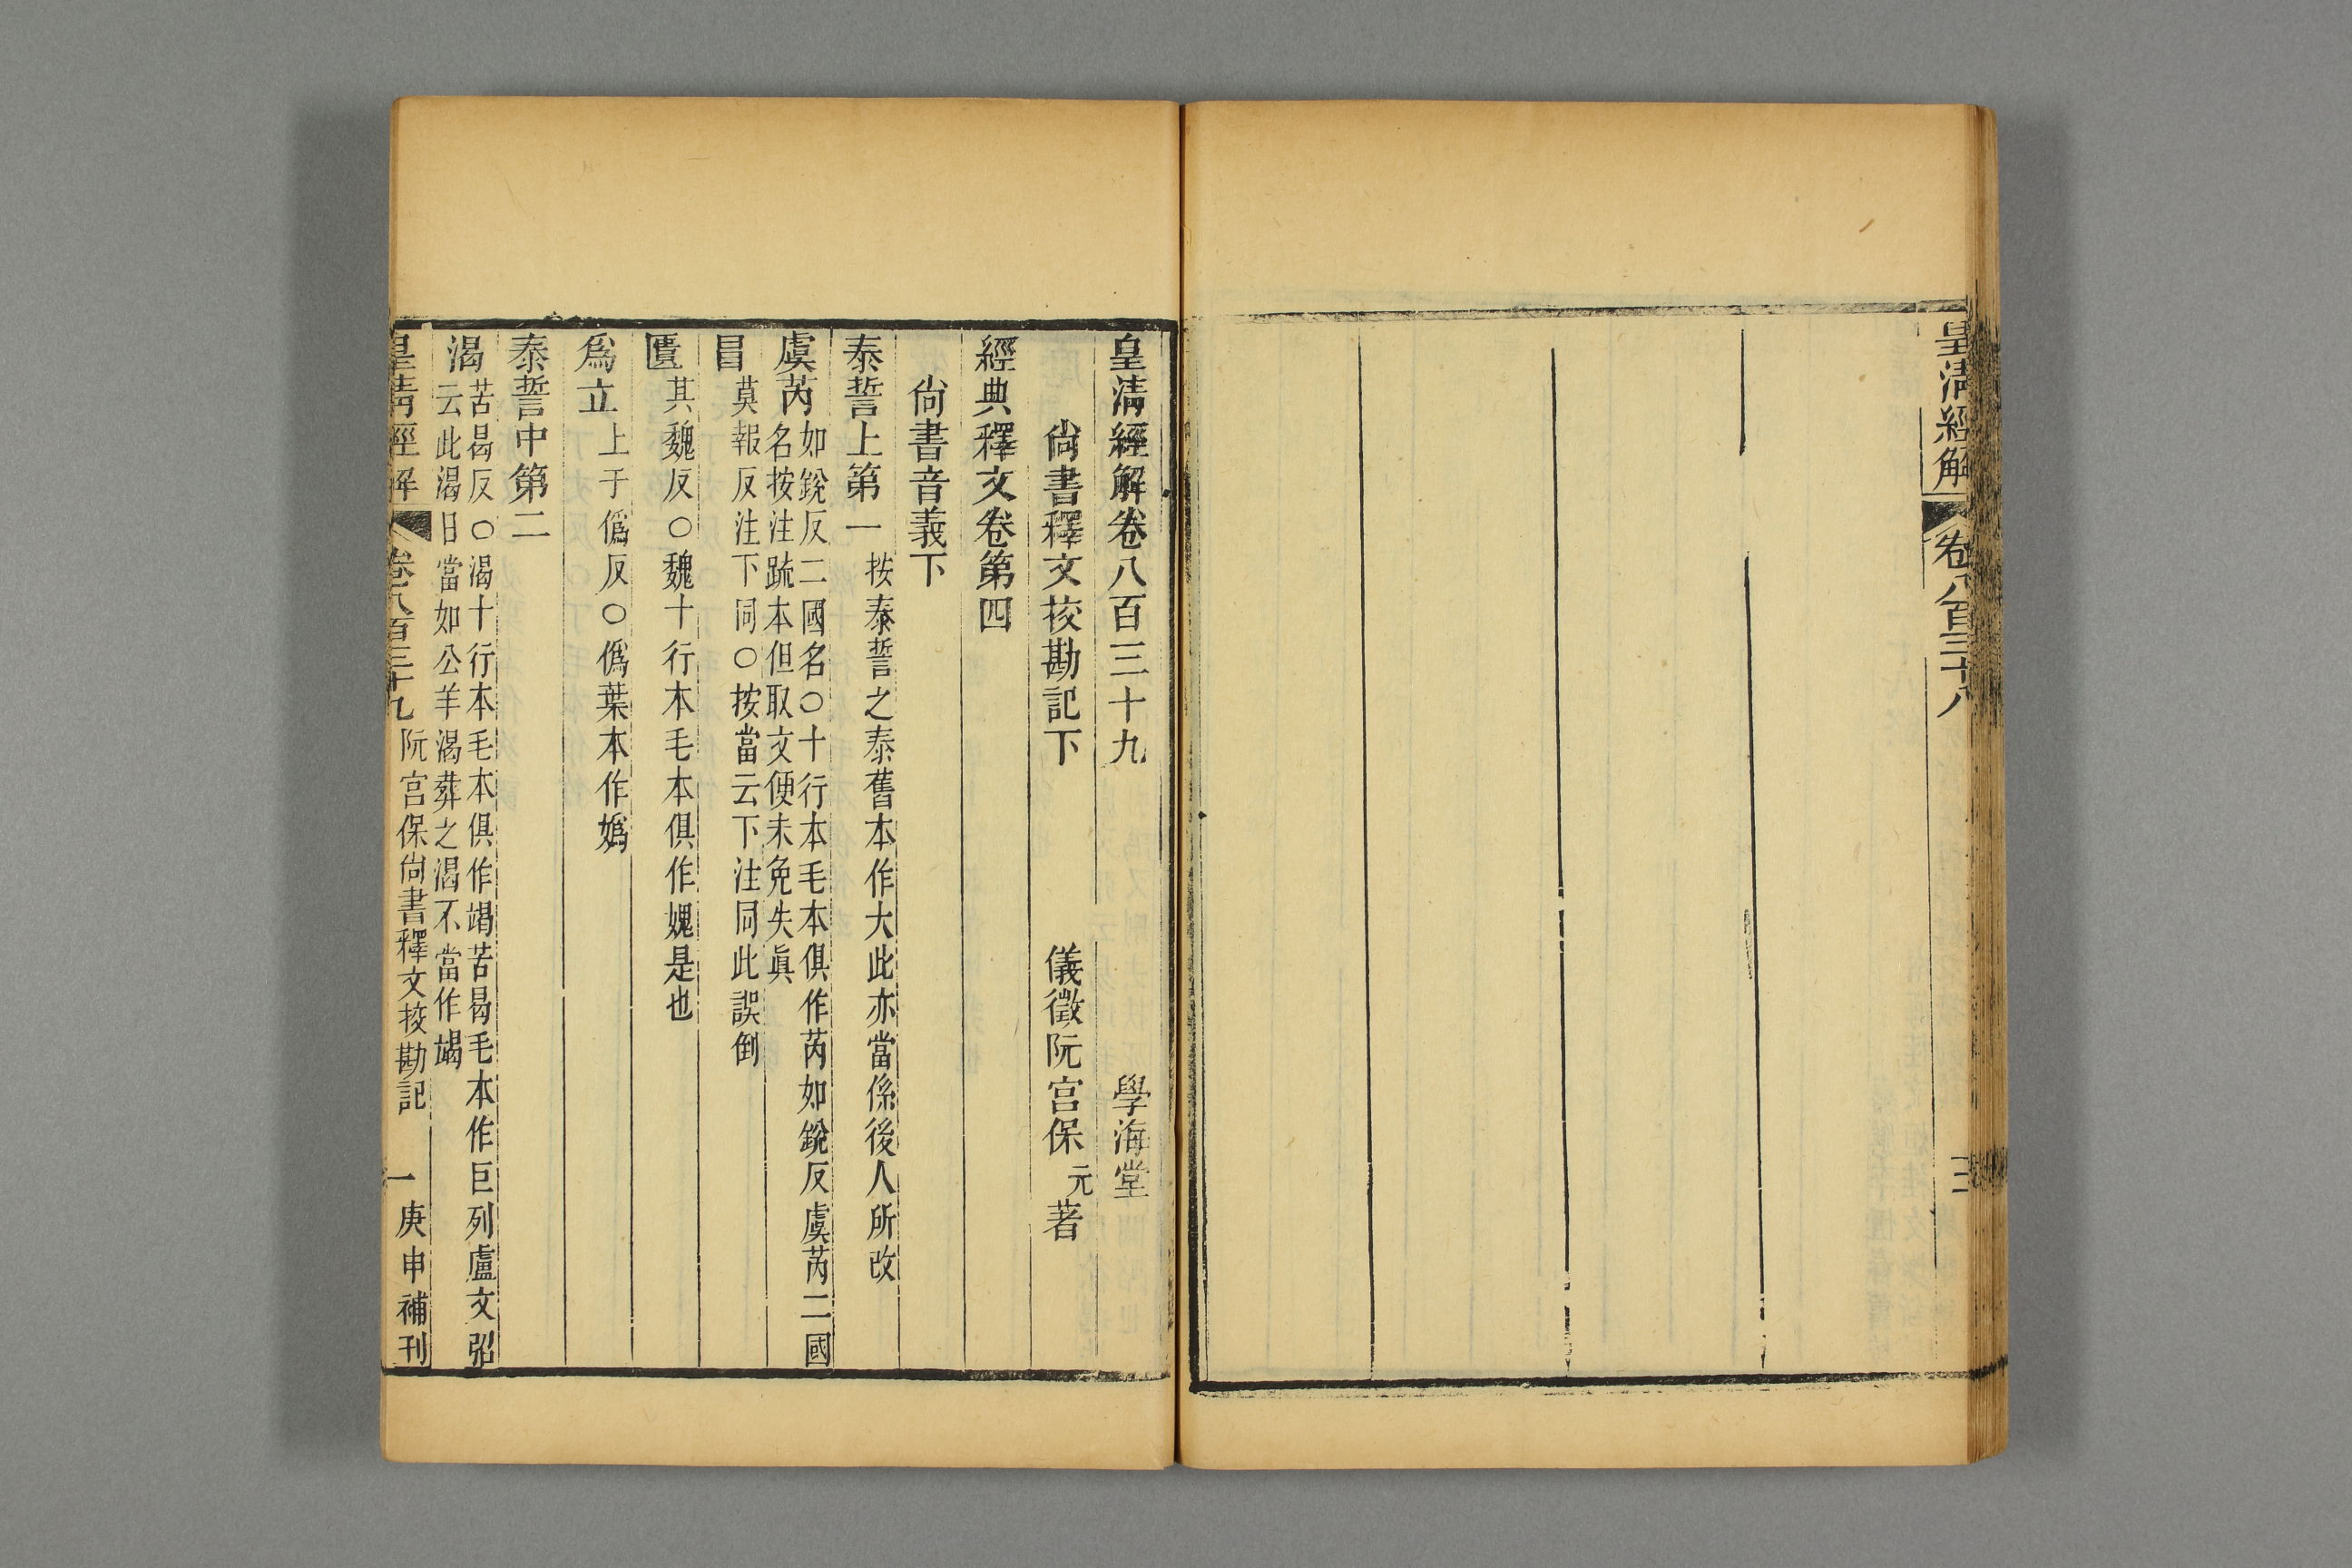 皇清經解
卷八百三十八
三
皇清經解卷八百三十九
學海堂
尙書釋文挍勘記下
儀徵阮宫保元著
經典釋文卷第四
尙書音義下
泰誓上第一
按泰誓之泰舊本作大此亦當係後人所改
虞芮
如銳反二國名○十行本毛本俱作芮如銳反虞芮二國
名按注䟽本但取文便未免失眞
冒
莫報反注下同○按當云下注同此誤倒
匱
其魏反○魏十行本毛本俱作媿是也
爲立
上于僞反○僞葉本作嬀
泰誓中第二
渴
苦曷反○渴十行本毛本俱作竭苦曷毛本作巨列盧文弨
云此渴日當如公羊渴葬之渴不當作竭
皇清經解
卷八百三十九
阮宫保尙書釋文挍勘記
一
庚申補刊